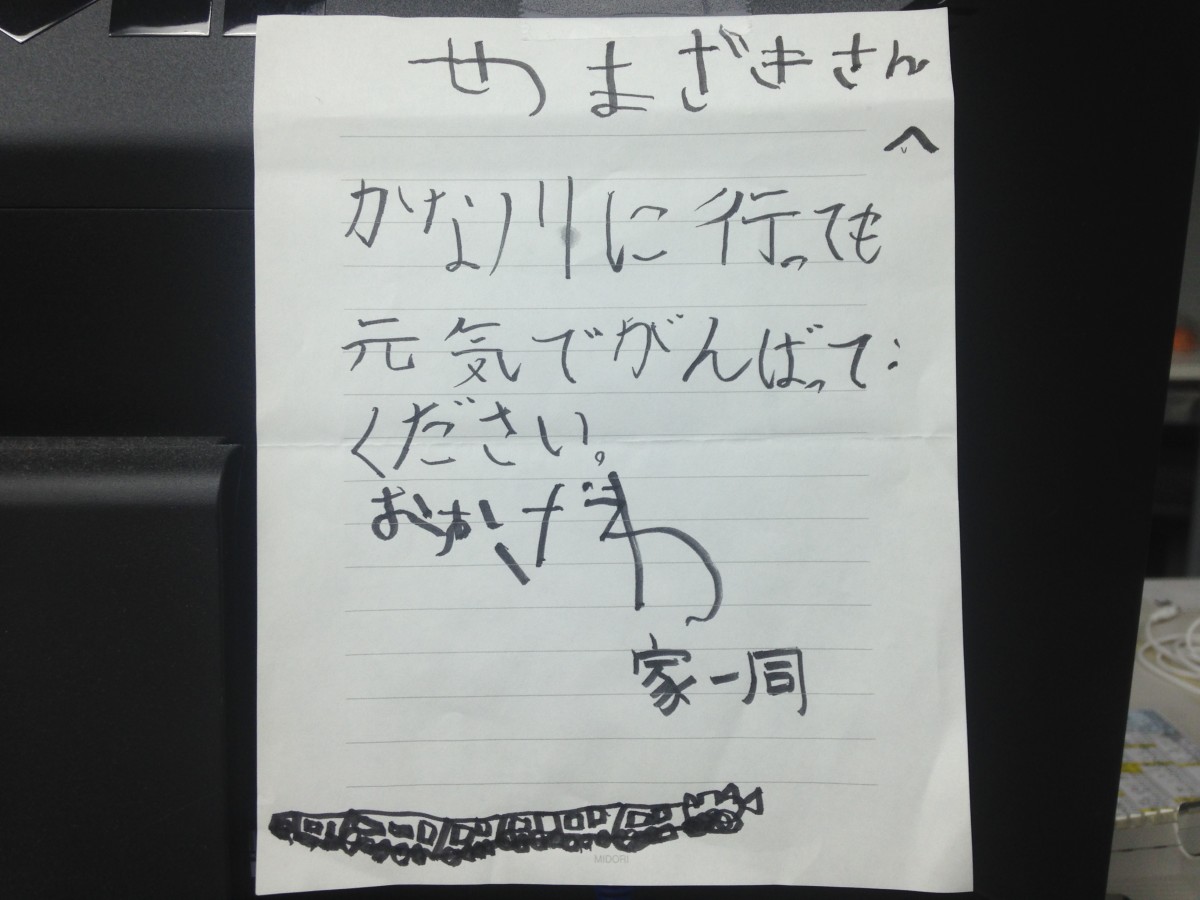 やまざきさん
へ
かな川に行っても
元気でがんばって
ください。
おかざわ
家一同
MIDORI